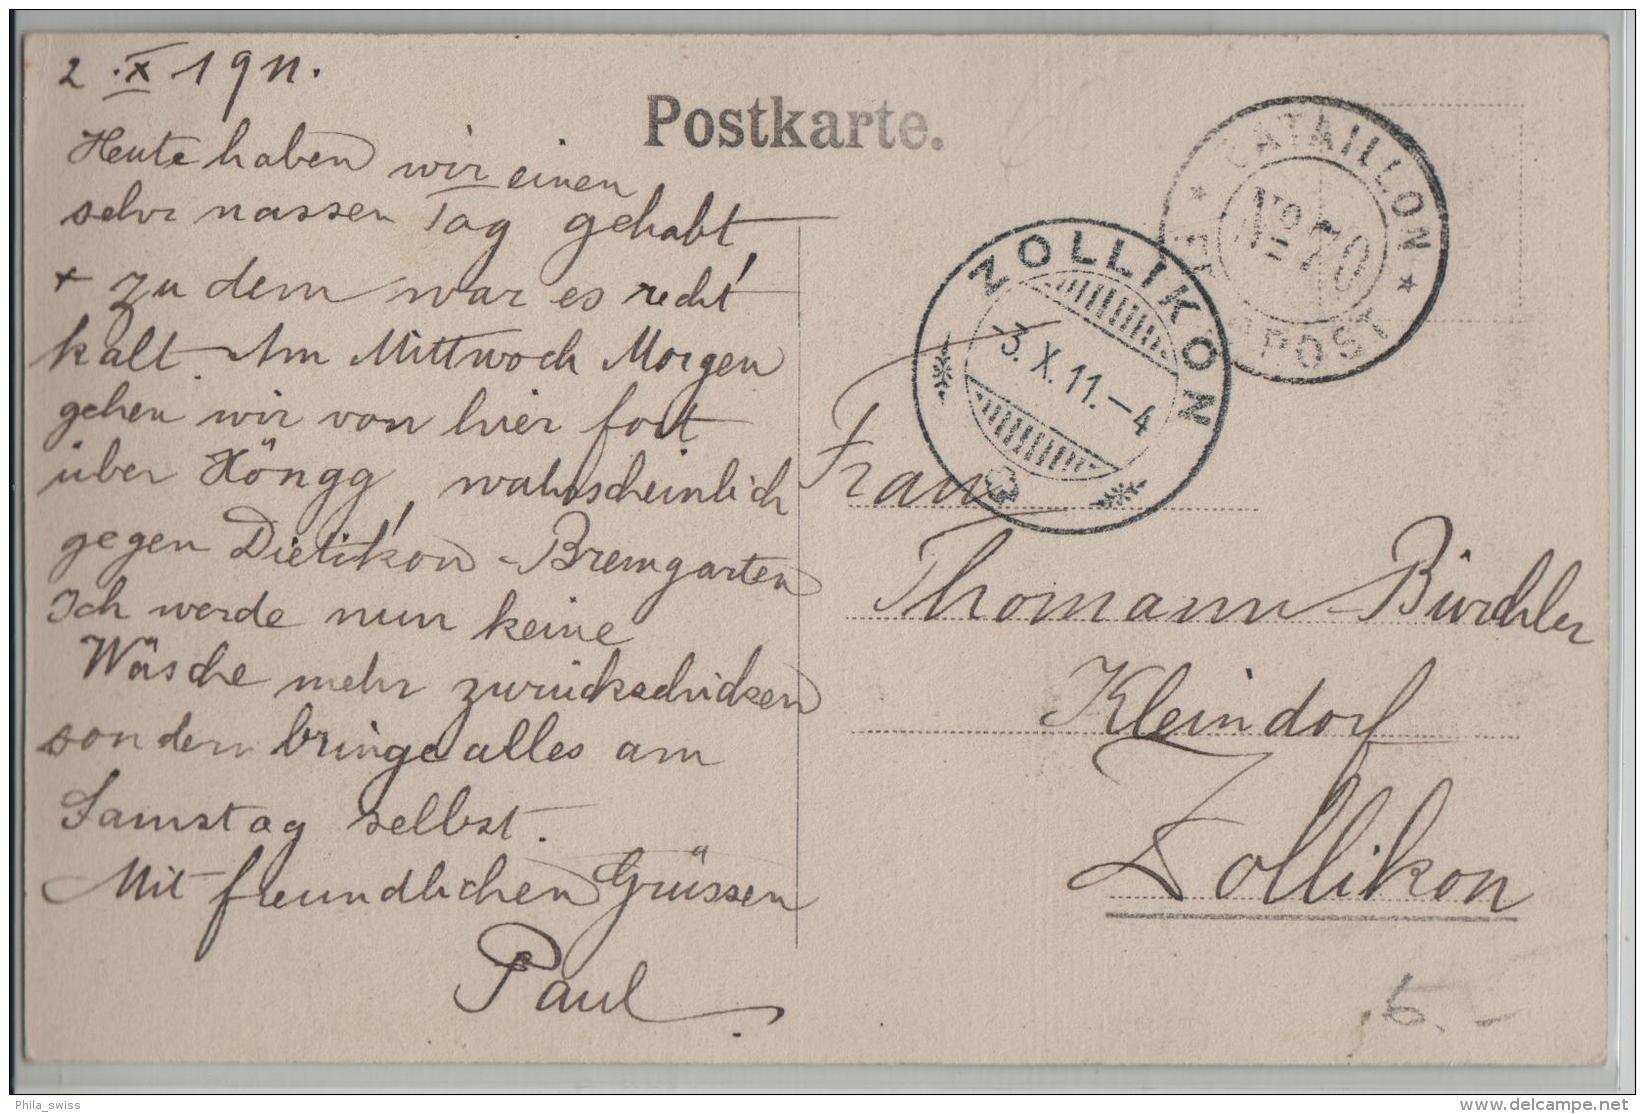 2. X 1911.
Heute haben wir einen
sehr nassen Tag gehabt
+ zu dem war es recht
kalt. Am Mittwoch Morgen
gehen wir von hier fort
über Höngg wahrscheinlich
gegen Dietikon-Bremgarten
Ich werde nun keine
Wäsche mehr zurückschicken
sondern bringe alles am
Samstag selbst.
Mit freundlichen Grüssen
Paul.
Postkarte.
BATAILLON
No 70
POST
ZOLLIKON
3.X.11.-4
Frau
Thomann-Bürchler
Kleindorf
Zollikon
5.-
Phila_swiss
www.delcampe.net